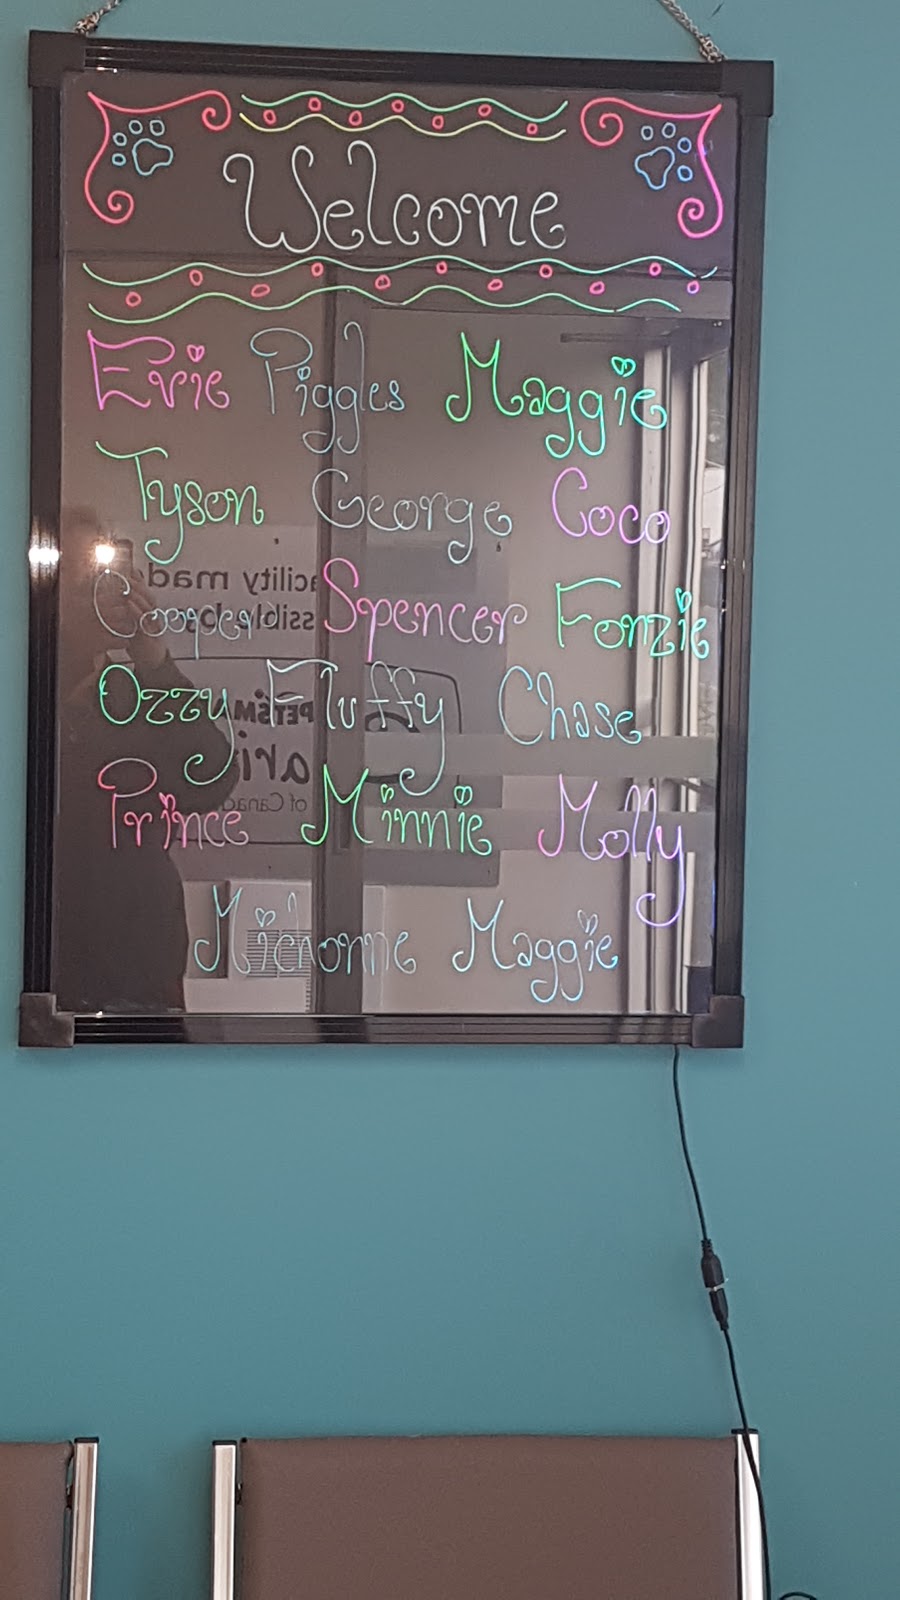 Welcome
Evie Piggles Maggie
Tyson George Coco
Cooper Spencer Fonzie
Ozzy Fluffy Chase
Prince Minnie Molly
Michonne Maggie
acility mad
ssible by
PETSM
ari
of Canad